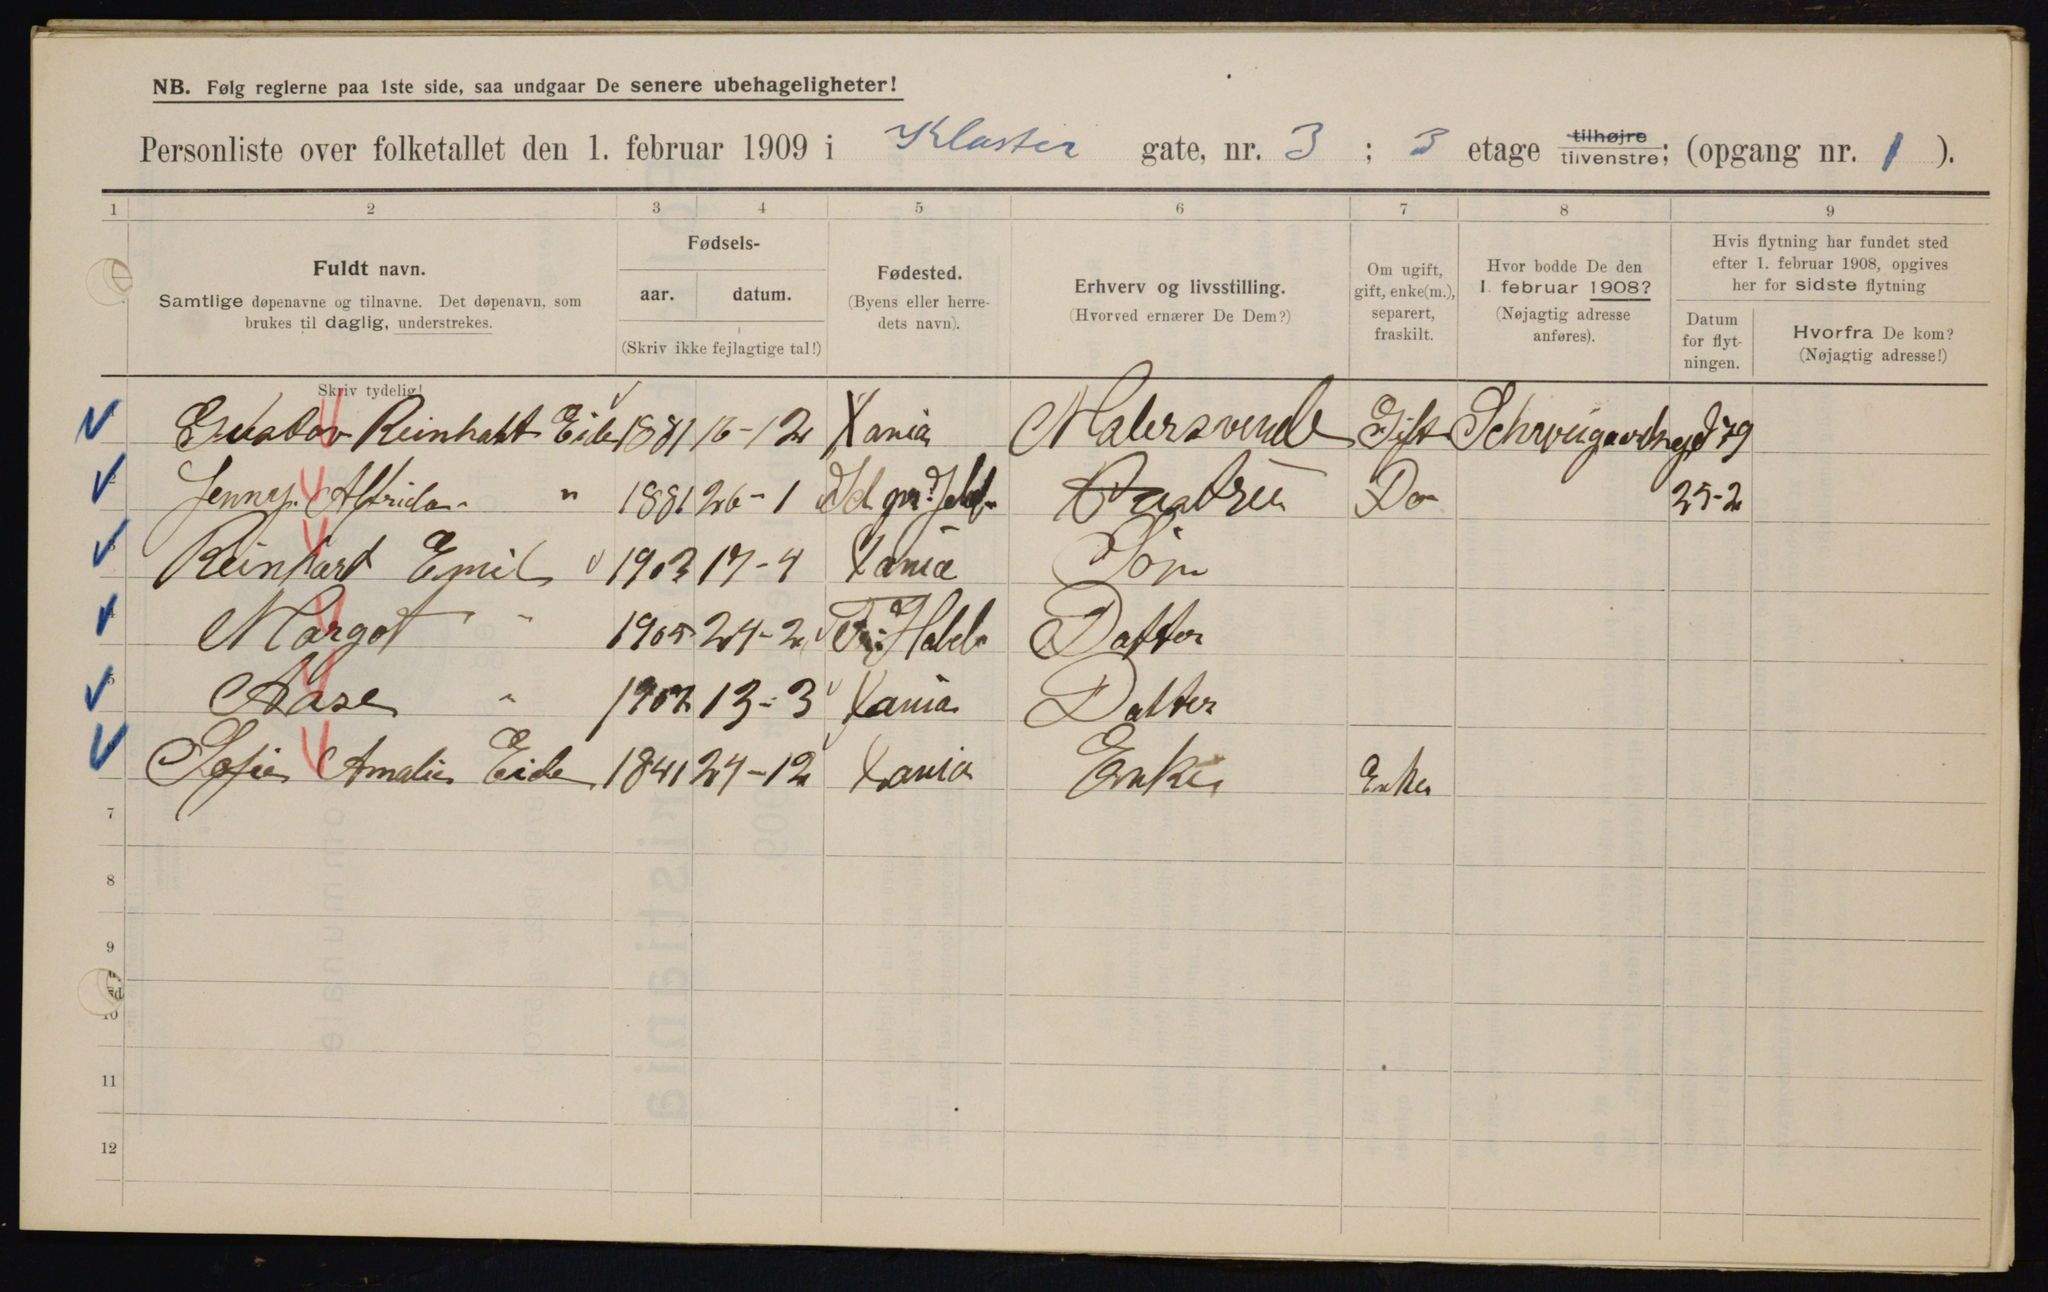 NB. Følg reglerne paa 1ste side, saa undgaar De senere ubehageligheter!
Personliste over folketallet den 1. februar 1909 i Kloster gate, nr. 3 ; 3 etage tilhøjre tilvenstre; (opgang nr. 1 ).
1 2 3 4 5 6 7 8 9
Fuldt navn.
Samtlige døpenavne og tilnavne. Det døpenavn, som
brukes til daglig, understrekes.
Fødsels-
aar. datum.
(Skriv ikke fejlagtige tal!)
Fødested.
(Byens eller herre-
dets navn).
Erhverv og livsstilling.
(Hvorved ernærer De Dem?)
Om ugift,
gift, enke(m.),
separert,
fraskilt.
Hvor bodde De den
1. februar 1908?
(Nøjagtig adresse
anføres).
Hvis flytning har fundet sted
efter 1. februar 1908, opgives
her for sidste flytning
Datum
for flyt-
ningen.
Hvorfra De kom?
(Nøjagtig adresse!)
Skriv tydelig!
Gustav Reinhart Eide 1881 16-12 Xania Malersvend Gift 79
Jenny Alfrida " 1881 26-1 Id pr. Do 25-2
Reinhart Emil 1903 17-4 Xania Søn
Margot " 1905 24-2 Datter
Aase " 1907 13-3 Xania Datter
Sofie Amalie Eide 1841 24-12 Xania Enke Enke
7
8
9
10
11
12